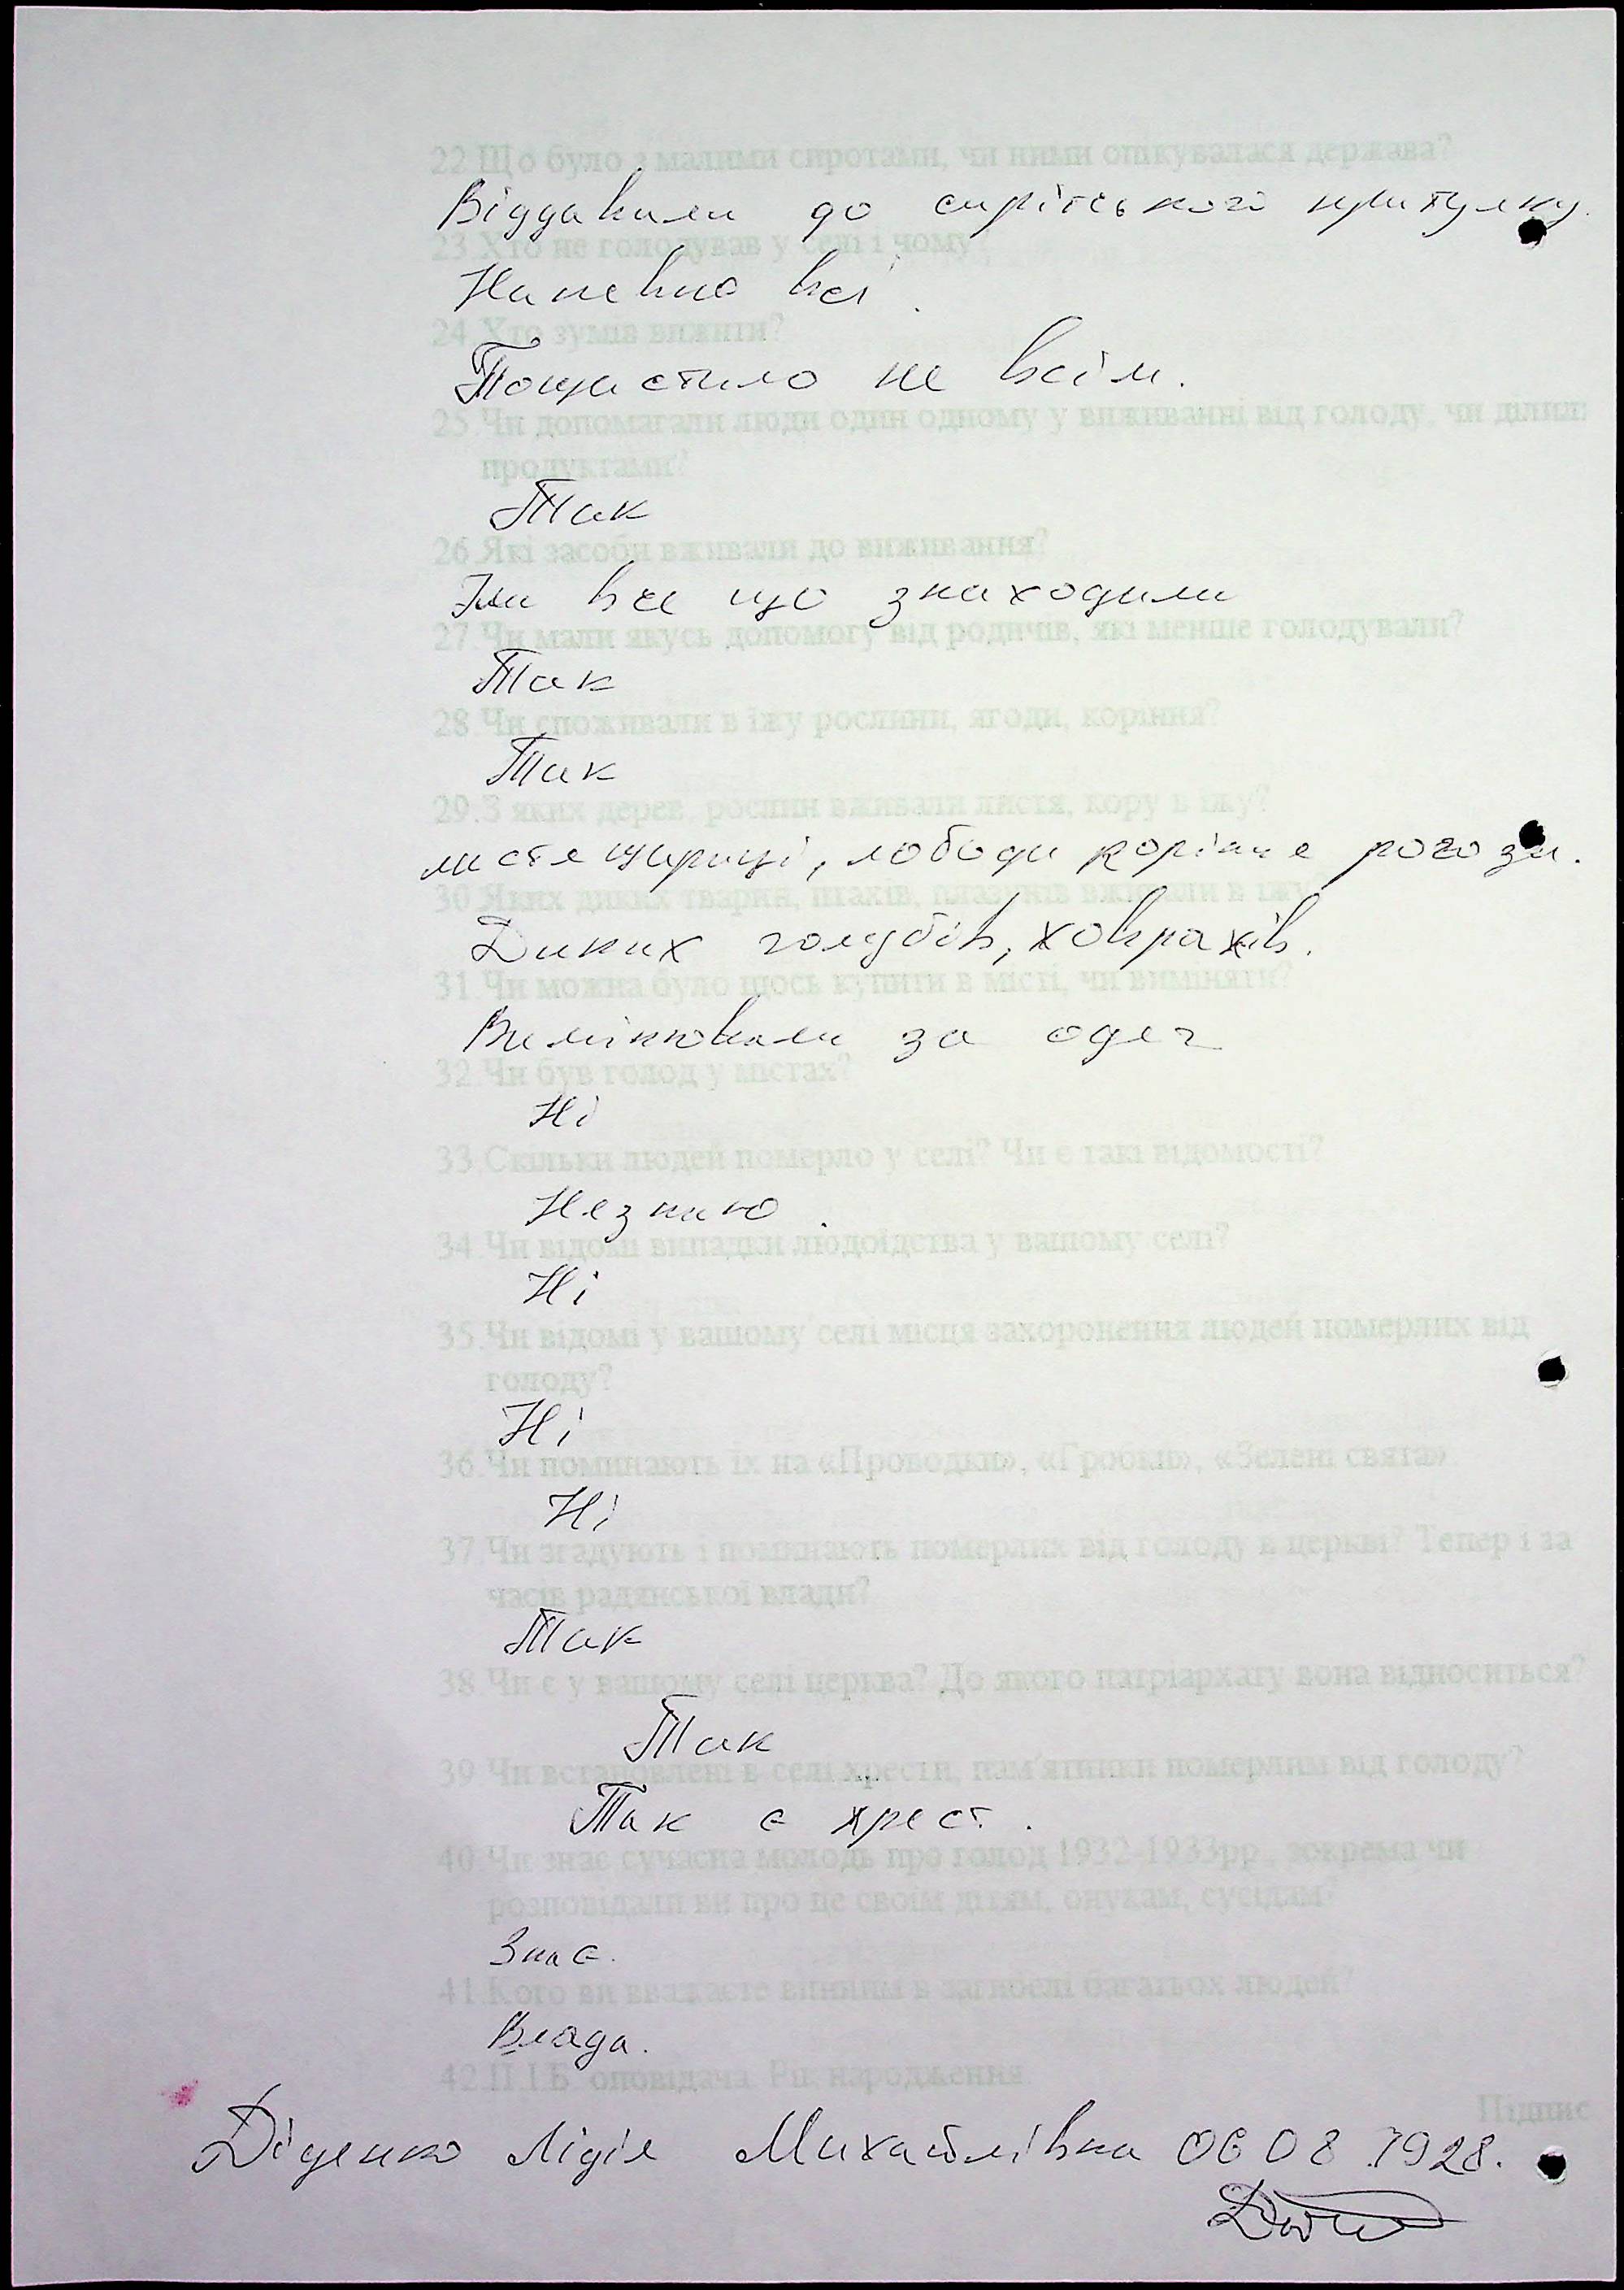 22.Що було з малими сиротами, чи ними опікувалася держава?
Віддавали до сирітського притулку.
23.Хто не голодував у селі і чому?
Напевно всі.
24.Хто зумів вижити?
Пощастило не всім.
25.Чи допомагали люди один одному у виживанні від голоду, чи ділили
продуктами?
Так
26.Які засоби вживали до виживання?
Їли все що знаходили
27.Чи мали якусь допомогу від родичів, які менше голодували?
Так
28.Чи споживали в їжу рослини, ягоди, коріння?
Так
29.З яких дерев, рослин вживали листя, кору в їжу?
листя щириці, лободи коріння рогози.
30.Яких диких тварин, птахів, плазунів вживали в їжу?
Диких голубів, ховрахів.
31.Чи можна було щось купити в місті, чи виміняти?
Вимінювали за одяг
32.Чи був голод у містах?
Ні
33.Скільки людей померло у селі? Чи є такі відомості?
Незнаю.
34.Чи відомі випадки людоїдства у вашому селі?
Ні
35.Чи відомі у вашому селі місця захоронення людей померлих від
голоду?
Ні
36.Чи поминають їх на «Проводки», «Гробки», «Зелені свята».
Ні
37.Чи згадують і поминають померлих від голоду в церкві? Тепер і за
часів радянської влади?
Так
38.Чи є у вашому селі церква? До якого патріархату вона відноситься?
Так
39.Чи встановлені в селі хрести, пам'ятники померлим від голоду?
Так є хрест.
40.Чи знає сучасна молодь про голод 1932-1933рр., зокрема чи
розповідали ви про це своїм дітям, онукам, сусідам?
Знає.
41.Кого ви вважаєте винним в загибелі багатьох людей?
Влада.
42.П.І.Б. оповідача. Рік народження.
Підпис
Діденко Лідія Михайлівна 06 08 1928.